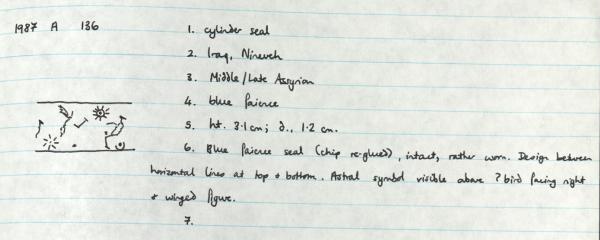 1987 A 136
1. cylinder seal
2. Iraq, Nineveh
3. Middle/Late Assyrian
4. blue faience
5. ht. 3.1cm; d., 1.2 cm.
6. Blue faience seal (chip re-glued), intact, rather worn. Design between
horizontal lines at top & bottom. Astral symbol visible above ? bird facing right
& winged figure.
7.